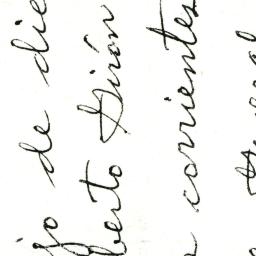 jo de die
berto Girón
corrientes